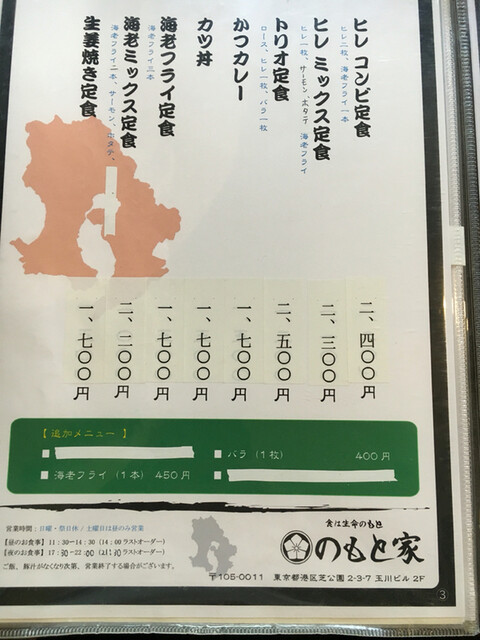 ヒレ コンビ定食
ヒレ二枚、海老フライ一本
ヒレ ミックス定食
ヒレ一枚、サーモン、ホタテ 海老フライ
トリオ定食
ロース、ヒレ一枚、バラ一枚
かつカレー
カツ丼
海老フライ定食
海老フライ三本
海老ミックス定食
海老フライ二本、サーモン、ホタテ、
生姜焼き定食
二、四〇〇円
二、三〇〇円
二、五〇〇円
一、七〇〇円
一、七〇〇円
一、七〇〇円
二、二〇〇円
一、七〇〇円
【 追加メニュー 】
■ バラ (1枚) 400円
■ 海老フライ (1本) 450円
営業時間：日曜・祭日休／土曜日は昼のみ営業
【昼のお食事】11：30ー14：30 (14：00ラストオーダー)
【夜のお食事】17：30ー22：00 (ラストオーダー)
ご飯、豚汁がなくなり次第、営業終了する場合がございます。
食は生命のもと
のもと家
〒105-0011 東京都港区芝公園2-3-7 玉川ビル2F
3